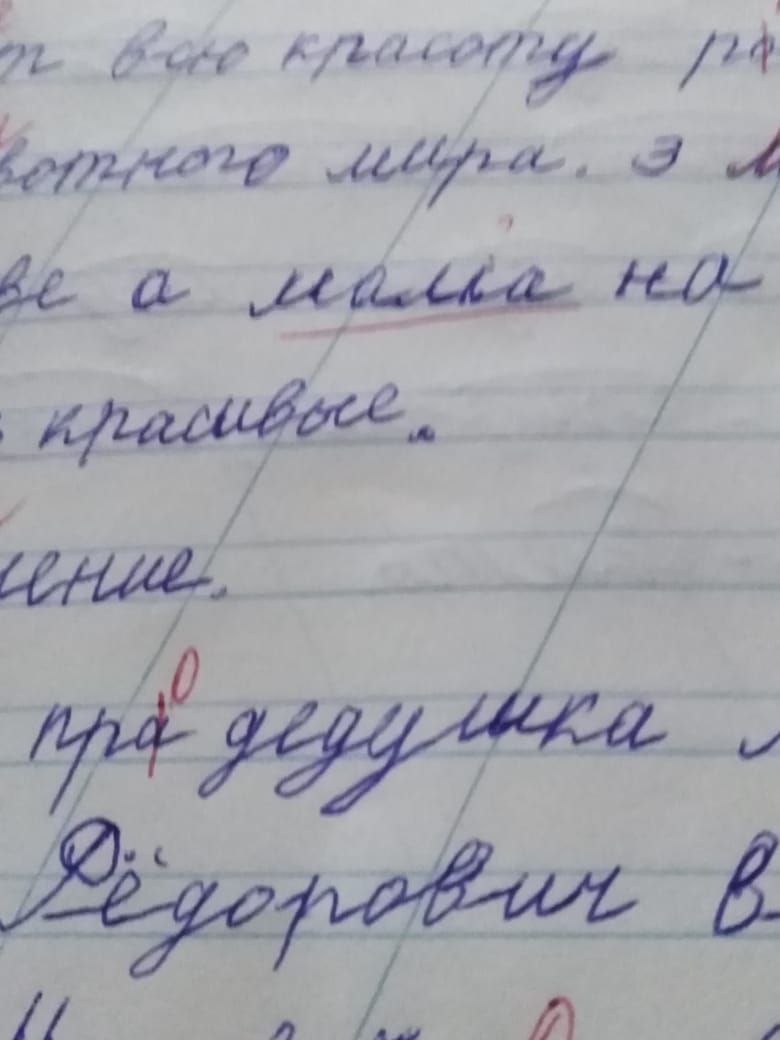 т всю красоту
вотного мира. З
ве а малка на
красивые.
ение.
пра дедушка
Фёдорович В